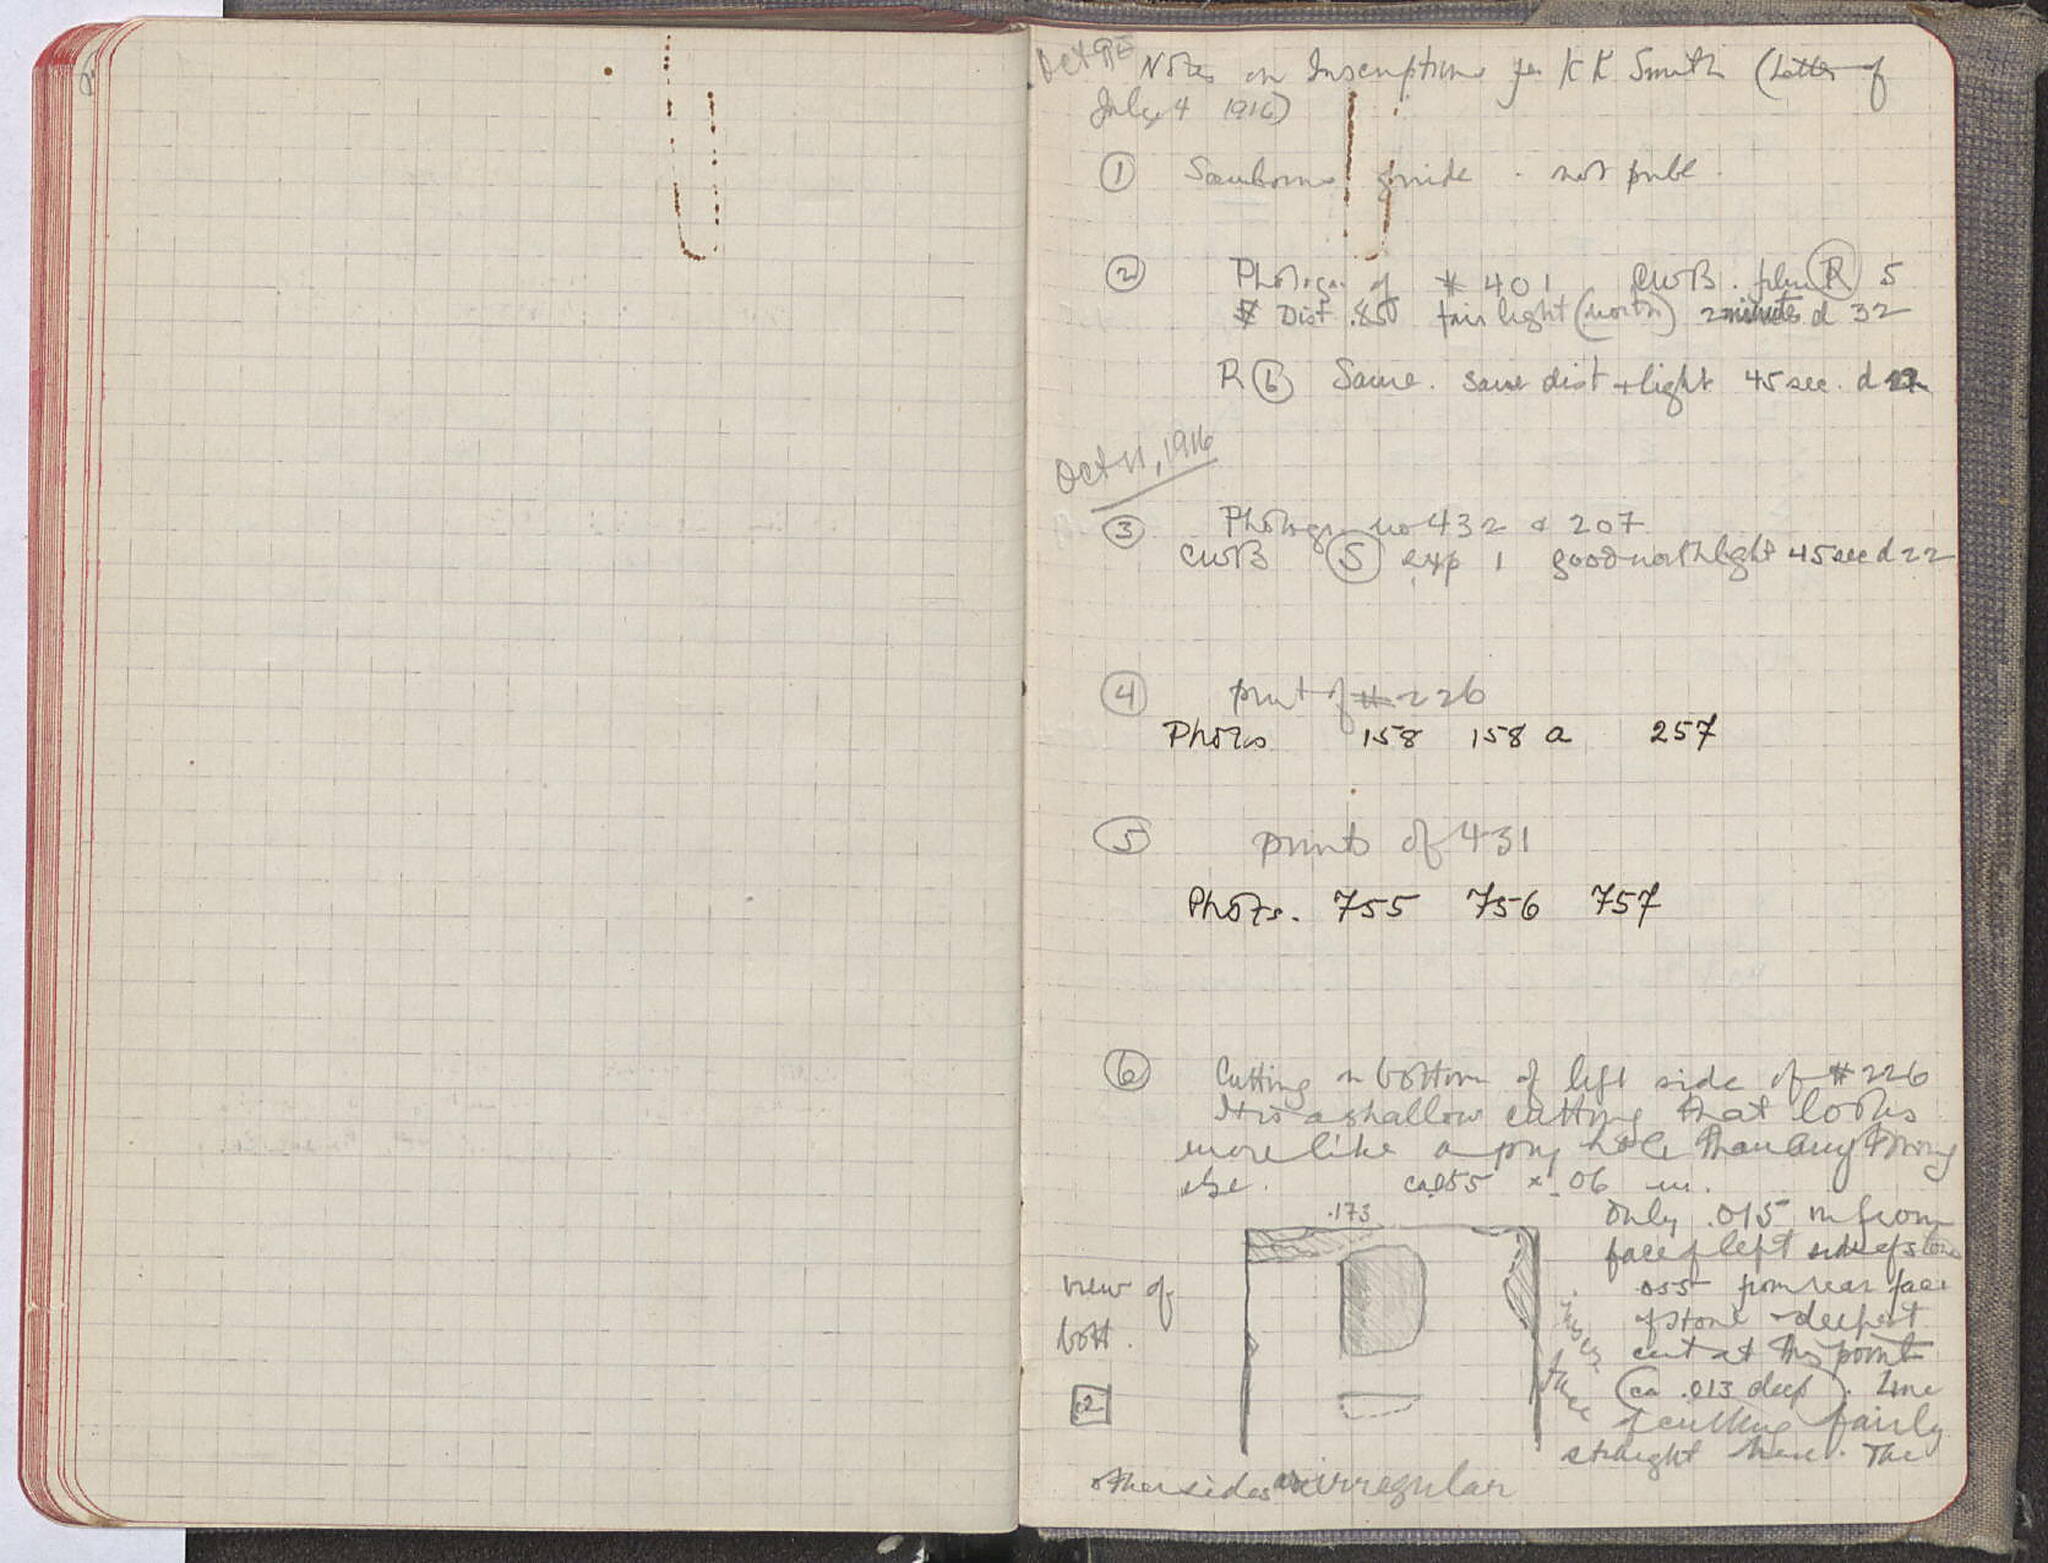 Notes on Inscriptions for K K Smith (Letter of
July 4 1916)
① not publ.
② Photogr. of # 401 CWB. film Ⓡ 5
Dist .85 fair light (north) 2 minutes d 32
R ⑥ Same. same dist + light 45 sec. d
Oct 11, 1916
③ Photogr no 432 & 207
CWB Ⓢ exp 1 good north light 45 sec d 22
④ print of # 226
Photos 158 158 a 257
⑤ prints of 431
Photos. 755 756 757
⑥ Cutting on bottom of left side of # 226
It is a shallow cutting that looks
more like a pry hole than anything
else. ca .055 x .06 m.
.173
Only .015 m from
face of left side of stone
.055 from rear face
of stone - deepest
cut at this point
(ca .013 deep). Line
of cutting fairly
straight here. The
other sides are irregular
view of
bott.
inscr.
face
.2